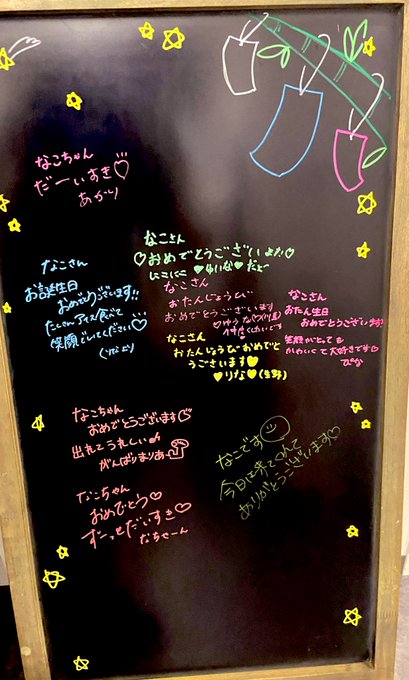 なこちゃん
だーいすき♡
あかり
なこさん
♡おめでとうございます♡
にこにこ ♥ゆいな♥だよ
なこさん
お誕生日
おめでとうございます!!
たくさんアイス食べて
笑顔でいてください♡
なこさん
おたんじょうび
おめでとうございます
なこさん
おたん生日
おめでとうございます
笑顔がとっても
かわいくて大好きです♡
ぴな
なこさん
おたんじょうびおめでと
うございます♥
♥りな♥
なこちゃん
おめでとうございます
出れてうれしい
がんばりまりあ
なこです
今日は来てくれて
ありがとうございます♡
なこちゃん
おめでとう♡
ずーっとだいすき♡
なちゃーん